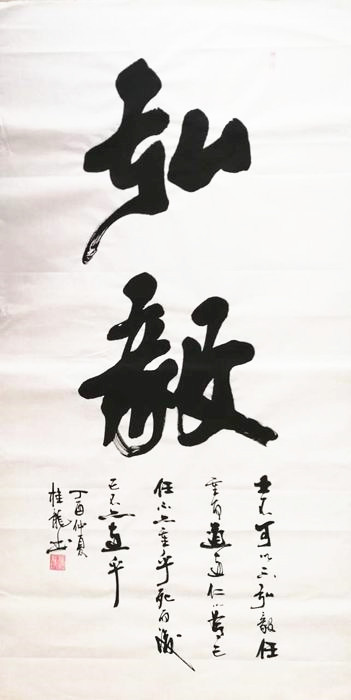 弘
毅
士不可以不弘毅任
重而道遠仁以為己
任不亦重乎死而後
已不亦遠乎
丁酉仲夏
桂龍书